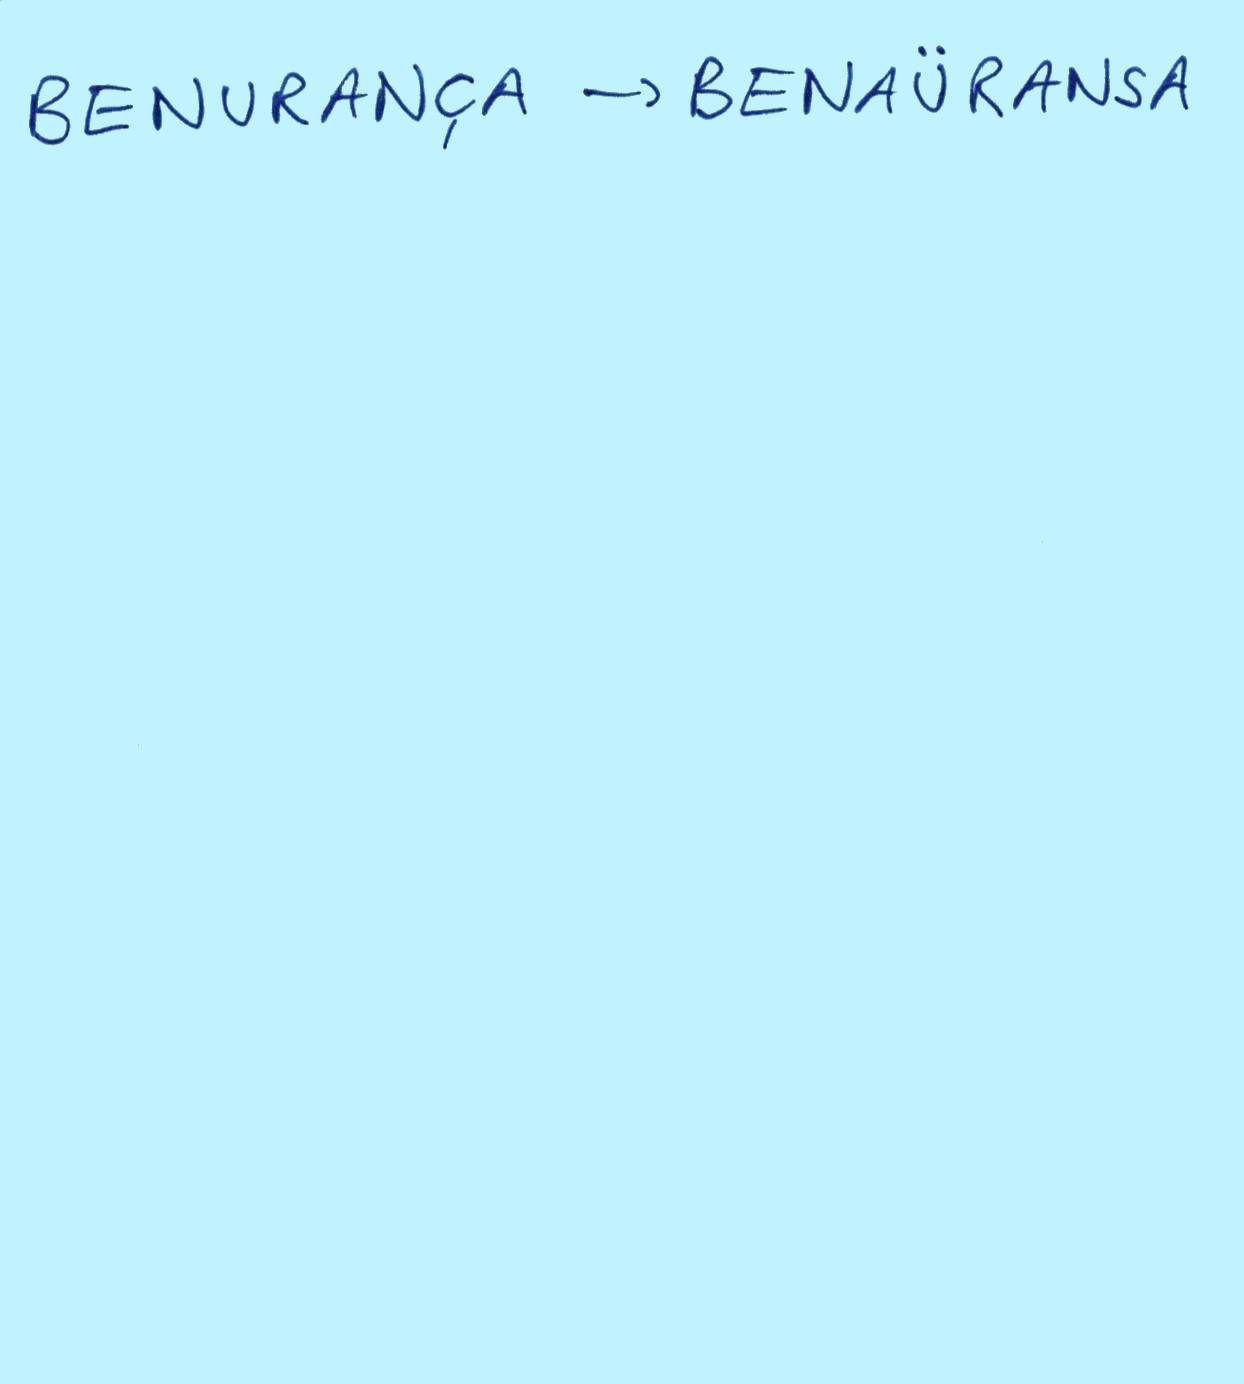 BENURANÇA → BENAÜRANSA